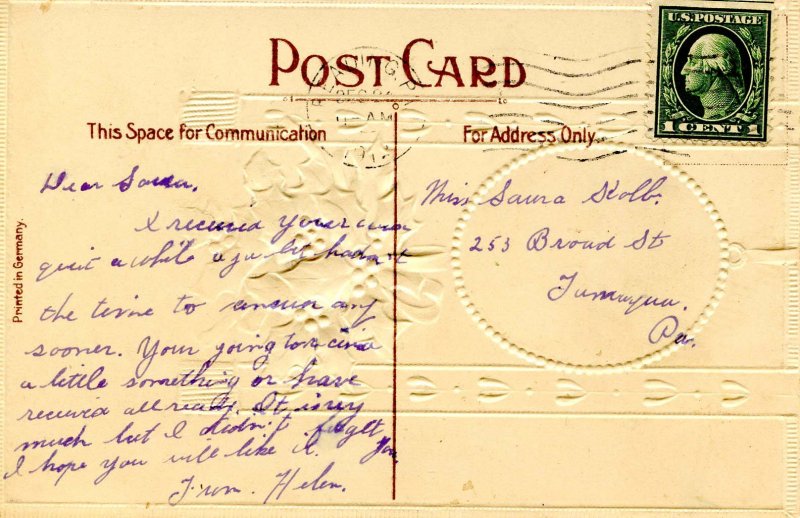 U.S. POSTAGE
1 CENT 1
POST CARD
DEC 24
AM
This Space for Communication
For Address Only.
Printed in Germany.
Dear Laura,
I received your
quit a while ago but hadn't
the time to any
sooner. Your going to
a little something or have
received allready. It
much but I didn't you
I hope you will like it.
From. Helen.
Miss Laura Kolb.
253 Broad St
Tamaqua.
Pa.